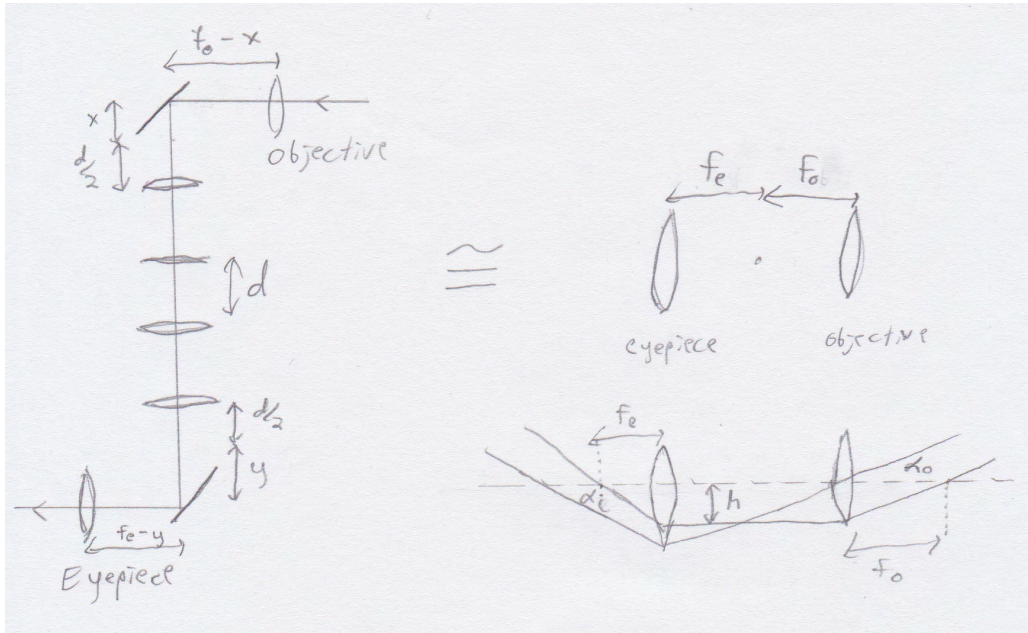 f₀ - x
x
d/2
Objective
d
d/2
y
fₑ-y
Eyepiece
≅
fₑ
f₀
eyepiece
objective
fₑ
αᵢ
h
α₀
f₀